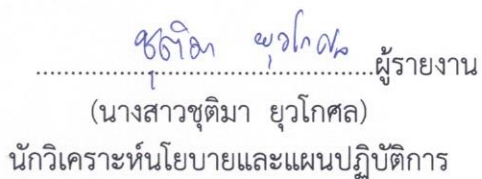 ชุติมา ยุวโกศล
........................................ผู้รายงาน
(นางสาวชุติมา ยุวโกศล)
นักวิเคราะห์นโยบายและแผนปฏิบัติการ